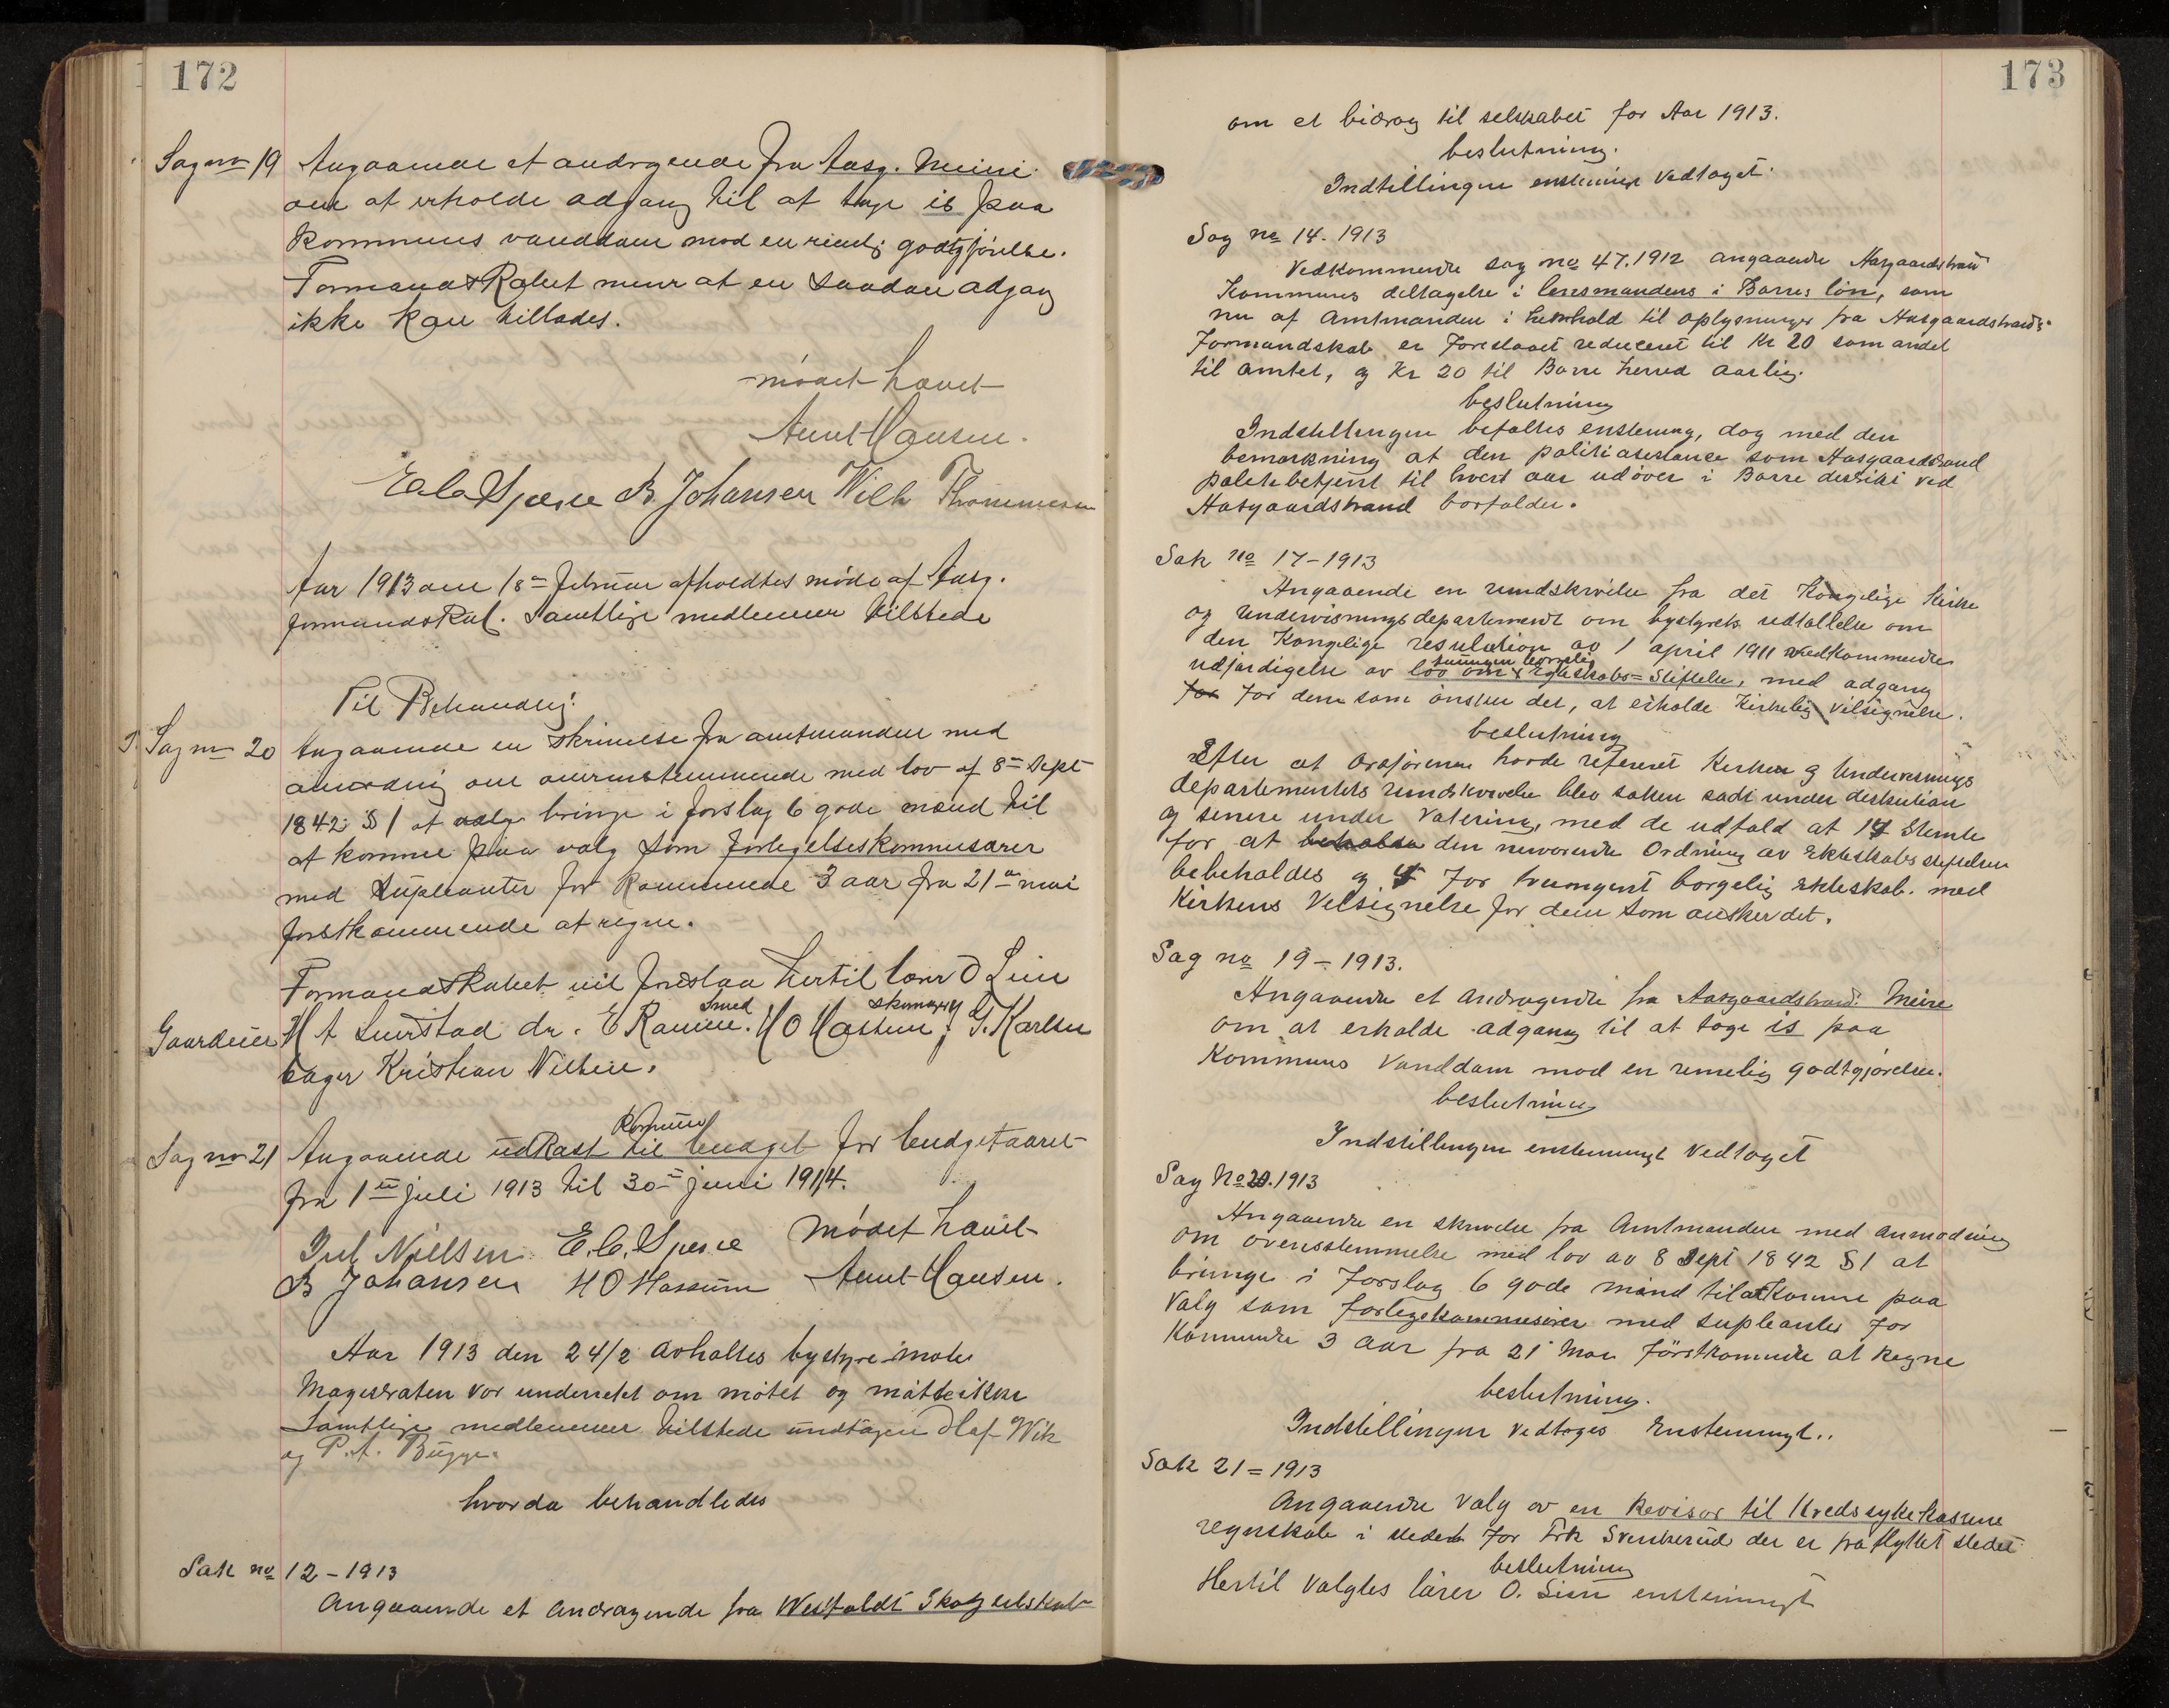 172
Sag no 19 Angaaende et andragende fra Aasg. Meieri
om at erholde adgang til at tage is paa
Kommunes vanddam mod en rimelig godtgjörelse.
Formandskabet mener at en saadan adgang
ikke kan tillades.
mödet hævet
Aunt Hansen.
E. C. Spesie B. Johansen Wilh Thommesen
Aar 1913 den 18de februar afholdtes möde af Aasg.
formandskab. Samtlige medlemmer tilstede
Til Behandling:
Sag no 20 Angaaende en skrivelse fra amtmanden med
anmodning om overensstemmende med lov af 8de Sept
1842 § 1 at valge bringe i forslag 6 gode mænd til
at komme paa valg som forlegelseskommisærer
med supleanter for kommende 3 aar fra 21de mai
förstkommende at regne.
Formandskabet vil foreslaa hertil lærer O Lien
smed skomager
Gaardeier H A Luerstad dr. E Ramm. H O Hassum, G. Karlsen
bager Kristian Nilsen.
Kommunens
Sag no 21 Angaaende udkast til budget for budgetaaret
fra 1ste juli 1913 til 30te juni 1914.
Jul Nielsen E. C. Spesie Mödet hævet
B Johansen H O Hassum Aunt Hansen.
Aar 1913 den 24/2 avholtes bystyremöte
Magistraten var underrettet om mötet og mötte ikke
Samtlige medlemmer tilstede undtagen Olaf Wik
og P. A. Bugge.
hvorda behandledes
Sak no 12 - 1913
Angaaende et andragende fra Westfoldt Skogselskab
173
om et bidrag til selskabet for Aar 1913.
beslutning.
Indtillingen enstemmigt vedtaget.
Sag no 14. 1913
Vedkommende sag no 47. 1912 angaaende Aasgaardstrand
Kommunes deltagelse i lensmandens i Borres lön, som
nu af Amtmanden i henhold til oplysninger fra Aasgaardstrands
Formandskab er foreslaaet reduceret til Kr 20 som andel
til amtet, og Kr 20 til Borre herred aarlig.
beslutning
Indstillingen befaltes enstemmig, dog med den
bemærkning at den politiassistance som Aasgaardstrand
politibetjent til hvert aar udöver i Borre distrikt ved
Aasgaardstrand borfalder.
Sak no 17 - 1913
Angaaende en rundskrivelse fra det Kongelige Kirke
og undervisningsdepartement om bystyrets udtallelse om
den Kongelige resulution av 1 april 1911 vedkommende
tvungen borgerlig
udfærdigelse av lov om Egteskabs=Stiftelse, med adgang
for for dem som önsker det, at erholde Kirkelig Vilsignelse.
beslutning
Efter at Ordföreren havde refereret Kirken og Undervisnings
departementets rundskrivelse blev saken sadt under diskution
og senere under Votering, med de udfald at 17 Stemte
for at beholde den nuværende Ordning av Ekteskabs stiftelsen
bebeholdes og 4 for tvungent borgelig Ekteskab. med
Kirkens Velsignelse for dem som ønsker det.
Sag no 19 - 1913.
Angaaende et Andragende fra Aasgaardstrand Meire
om at erholde adgang til at tage is paa
Kommunes Vanddam mod en rimelig godtgjörelse.
beslutning
Indstillingen enstemmigt Vedtaget
Sag No 20. 1913
Angaaende en skrivelse fra Amtmanden med anmodning
om överensstemmelse med lov av 8 Sept 1842 § 1 at
bringe i Forslag 6 gode mænd til at Komme paa
Valg som forlegskommisærer med supleanter for
Kommende 3 aar fra 21 Mai förstkommende at Regne
beslutning.
Indstillingen Vedtages Enstemmigt..
Sak 21 = 1913
Angaaende Valg av en Revisor til Kredssykekassene
regnskab i stedet for Frk Svenkerud der er fraflyttet stedet
beslutning
Hertil Valgtes lærer O. Lien enstemmigt